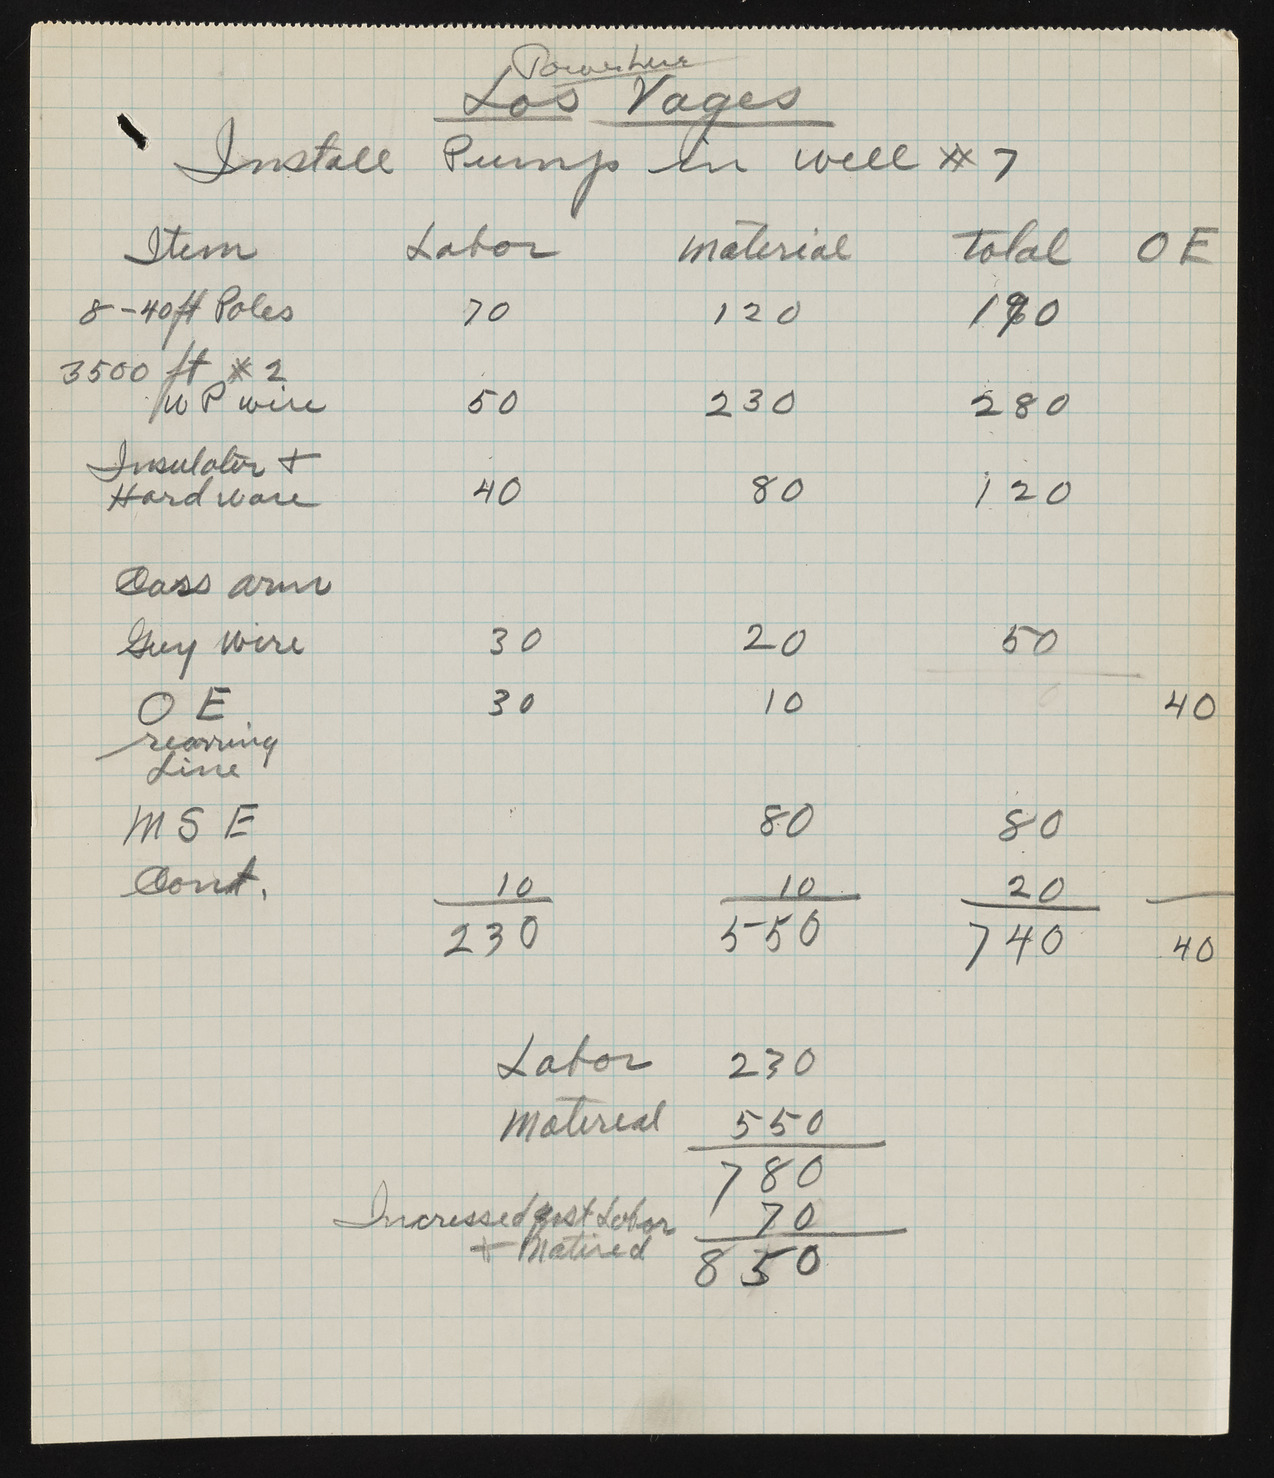 Powerline
Los Vages
Install Pump in well #7
Item Labor Material Total O E
8-40ft Poles 70 120 190
3500 ft #2
W P wire 50 230 280
Insulator +
Hardware 40 80 120
Coss arm
Guy Wire 30 20 50
O E 30 10 40
rearring
Line
M S E 80 80
Cont. 10 10 20
230 550 740 40
Labor 230
Matereal 550
780
Incressed Cost Labor 70
+ Matired 850